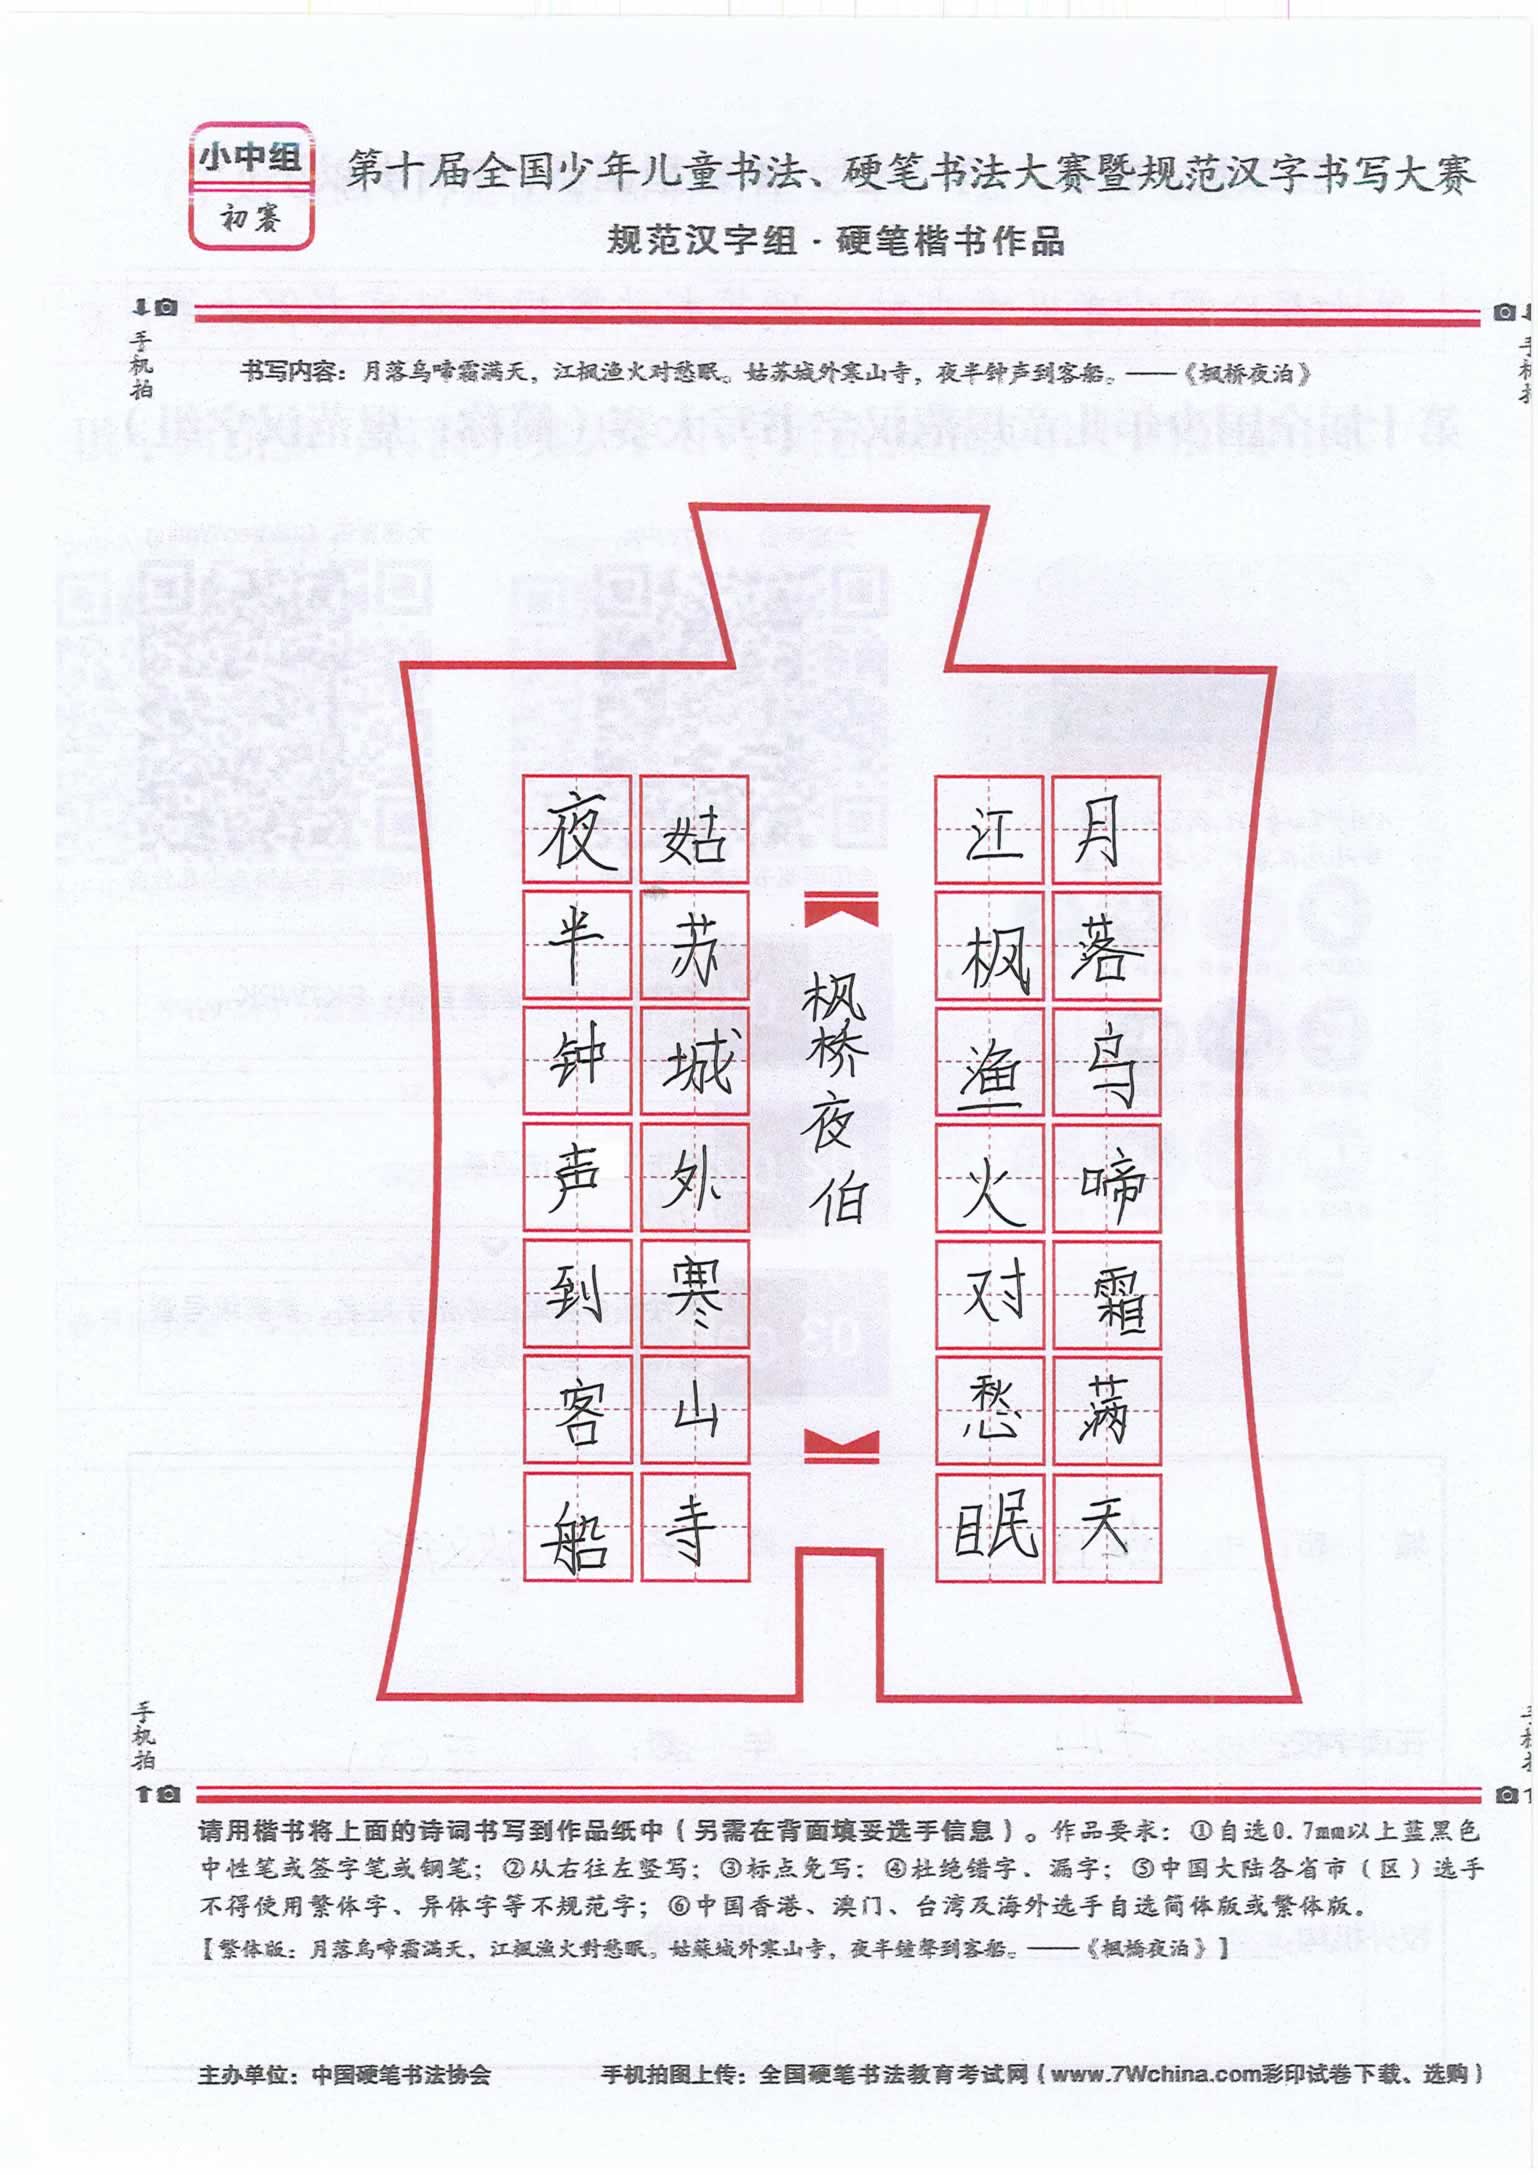 小中组
初赛
第十届全国少年儿童书法、硬笔书法大赛暨规范汉字书写大赛
规范汉字组·硬笔楷书作品
手机拍
书写内容：月落乌啼霜满天，江枫渔火对愁眠。姑苏城外寒山寺，夜半钟声到客船。——《枫桥夜泊》
月落乌啼霜满天
江枫渔火对愁眠
枫桥夜伯
姑苏城外寒山寺
夜半钟声到客船
手机拍
请用楷书将上面的诗词书写到作品纸中（另需在背面填妥选手信息）。作品要求：①自选0.7mm以上蓝黑色
中性笔或签字笔或钢笔；②从右往左竖写；③标点免写；④杜绝错字、漏字；⑤中国大陆各省市（区）选手
不得使用繁体字、异体字等不规范字；⑥中国香港、澳门、台湾及海外选手自选简体版或繁体版。
【繁体版：月落烏啼霜滿天，江楓漁火對愁眠。姑蘇城外寒山寺，夜半鐘聲到客船。——《楓橋夜泊》】
主办单位：中国硬笔书法协会
手机拍图上传：全国硬笔书法教育考试网（www.7Wchina.com彩印试卷下载、选购）